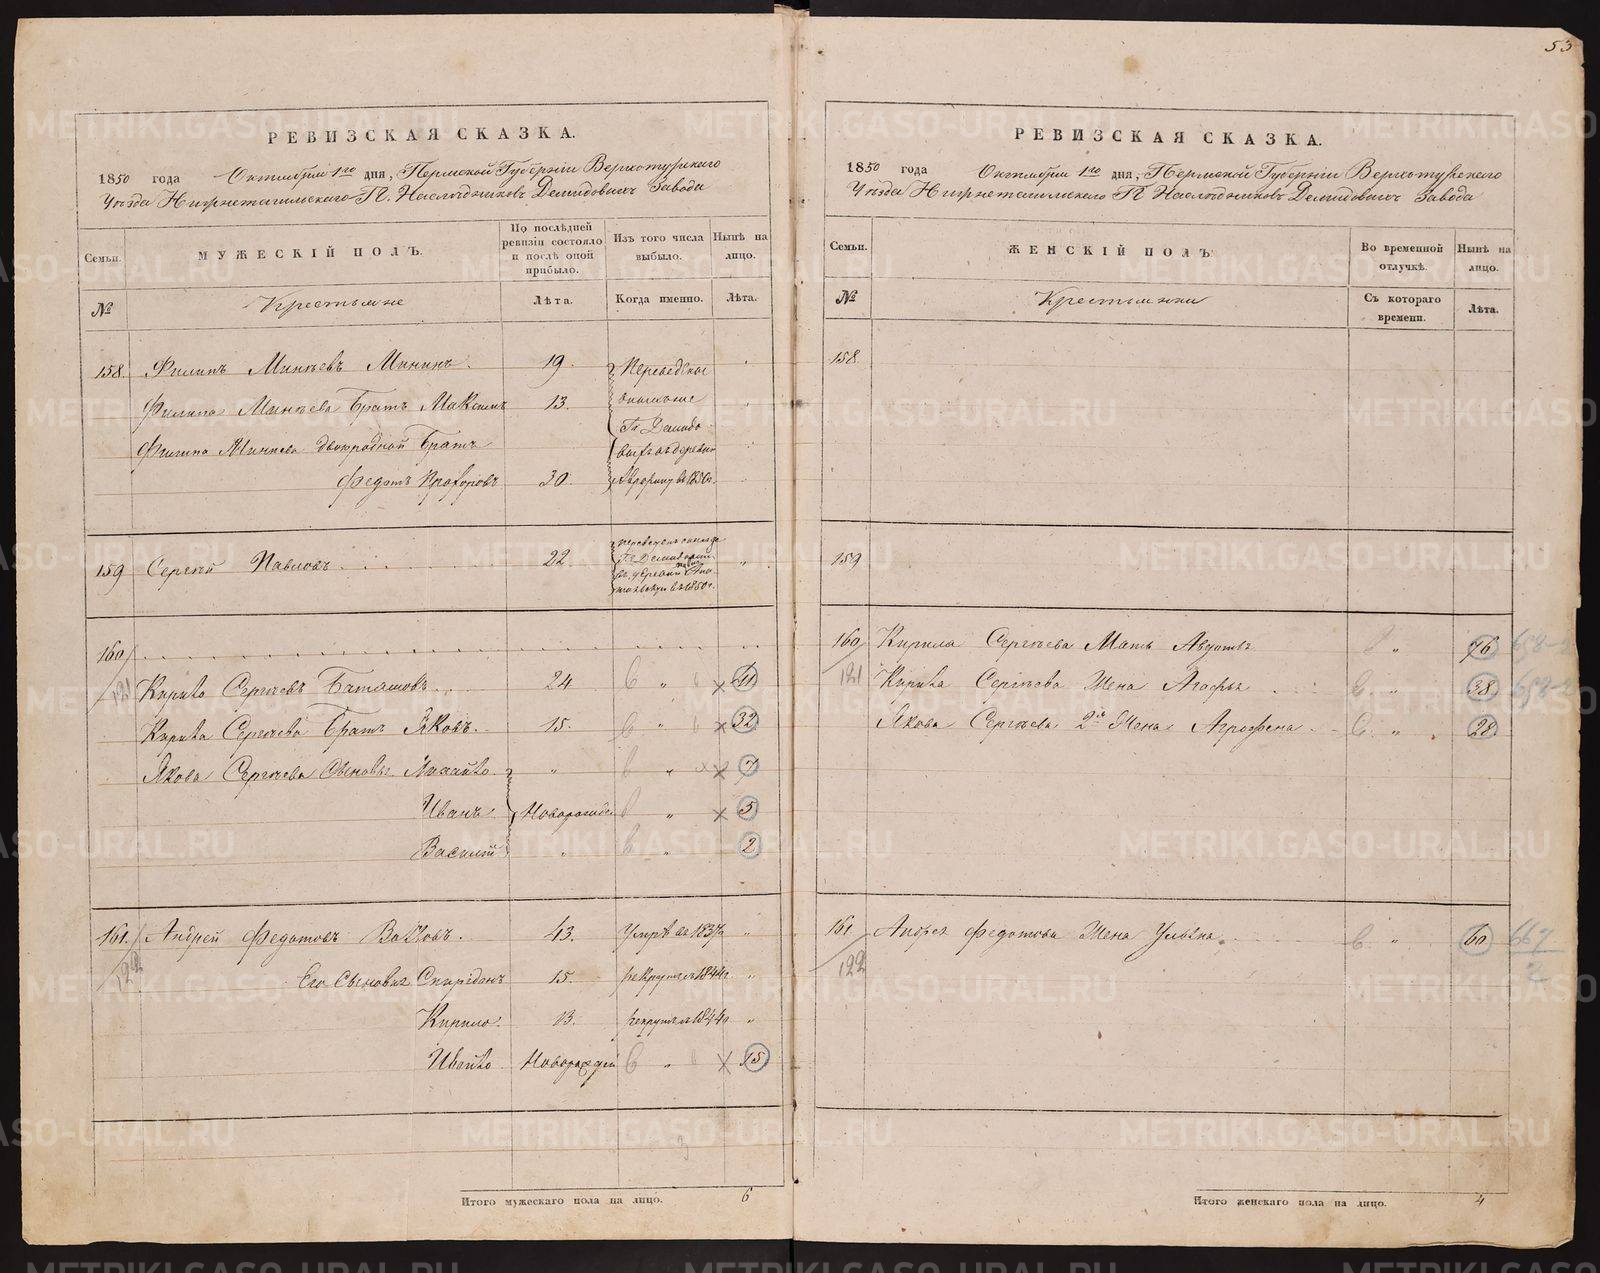 53
РЕВИЗСКАЯ СКАЗКА.
1850 года Октября 1го дня, Пермской Губерніи Верхотурскаго
Уѣзда Нижнетагильскаго Г. Наслѣдниковъ Демидовыхъ Завода
Семьи.
МУЖЕСКІЙ ПОЛЪ.
По послѣдней ревизіи состояло и послѣ оной прибыло.
Изъ того числа выбыло.
Нынѣ на лицо.
№
Крестьяне
Лѣта.
Когда именно.
Лѣта.
158. Филипъ Минѣевъ Мининъ. 19.
Филипа Минѣева Братъ Максимъ 13.
Филипа Минѣева двоюродной Братъ
Федотъ Прохоровъ 30.
Гг Демидо
въ 1850г.
159 Сергѣй Павловъ 22.
160
121 Кирила Сергѣевъ Баташовъ 24 " 41
Кирила Сергѣева Братъ Яковъ. 15. " 32
Якова Сергѣева Сыновья Михайло. " " 7
Иванъ. Новорожде " 5
Василій " " 2
161. Андрей Федотовъ Волковъ. 43. Умре въ 1837г "
122 Его Сыновья Спиридонъ 15. рекрутъ 1844г "
Кирило. 13. рекрутъ 1844г "
Ивайло Новорожден " 15
Итого мужескаго пола на лицо. 6
РЕВИЗСКАЯ СКАЗКА.
1850 года Октября 1го дня, Пермской Губерніи Верхотурскаго
Уѣзда Нижнетагильскаго Г Наслѣдниковъ Демидовыхъ Завода
Семьи.
ЖЕНСКІЙ ПОЛЪ.
Во временной отлучкѣ.
Нынѣ на лицо.
№
Крестьянки
Съ котораго времени.
Лѣта.
158.
159
160 Кирила Сергѣева Мать Авдотья " 76
121 Кирила Сергѣева Жена Агафья " 38
Якова Сергѣева 2я Жена Аграфена " 28
161 Андрея Федотова Жена Ульяна " 60 667
122 2
Итого женскаго пола на лицо. 4
METRIKI.GASO-URAL.RU